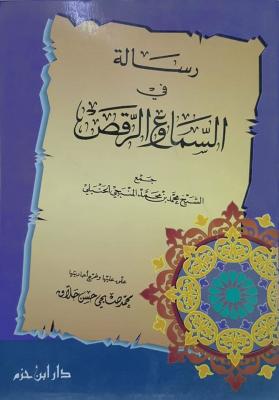 رسالة
في
السماع والرقص
جمع
الشيخ محمد بن محمد المنبجي الحنبلي
علق عليها وخرج أحاديثها
محمد صبحي حسن حلاق
دار ابن حزم